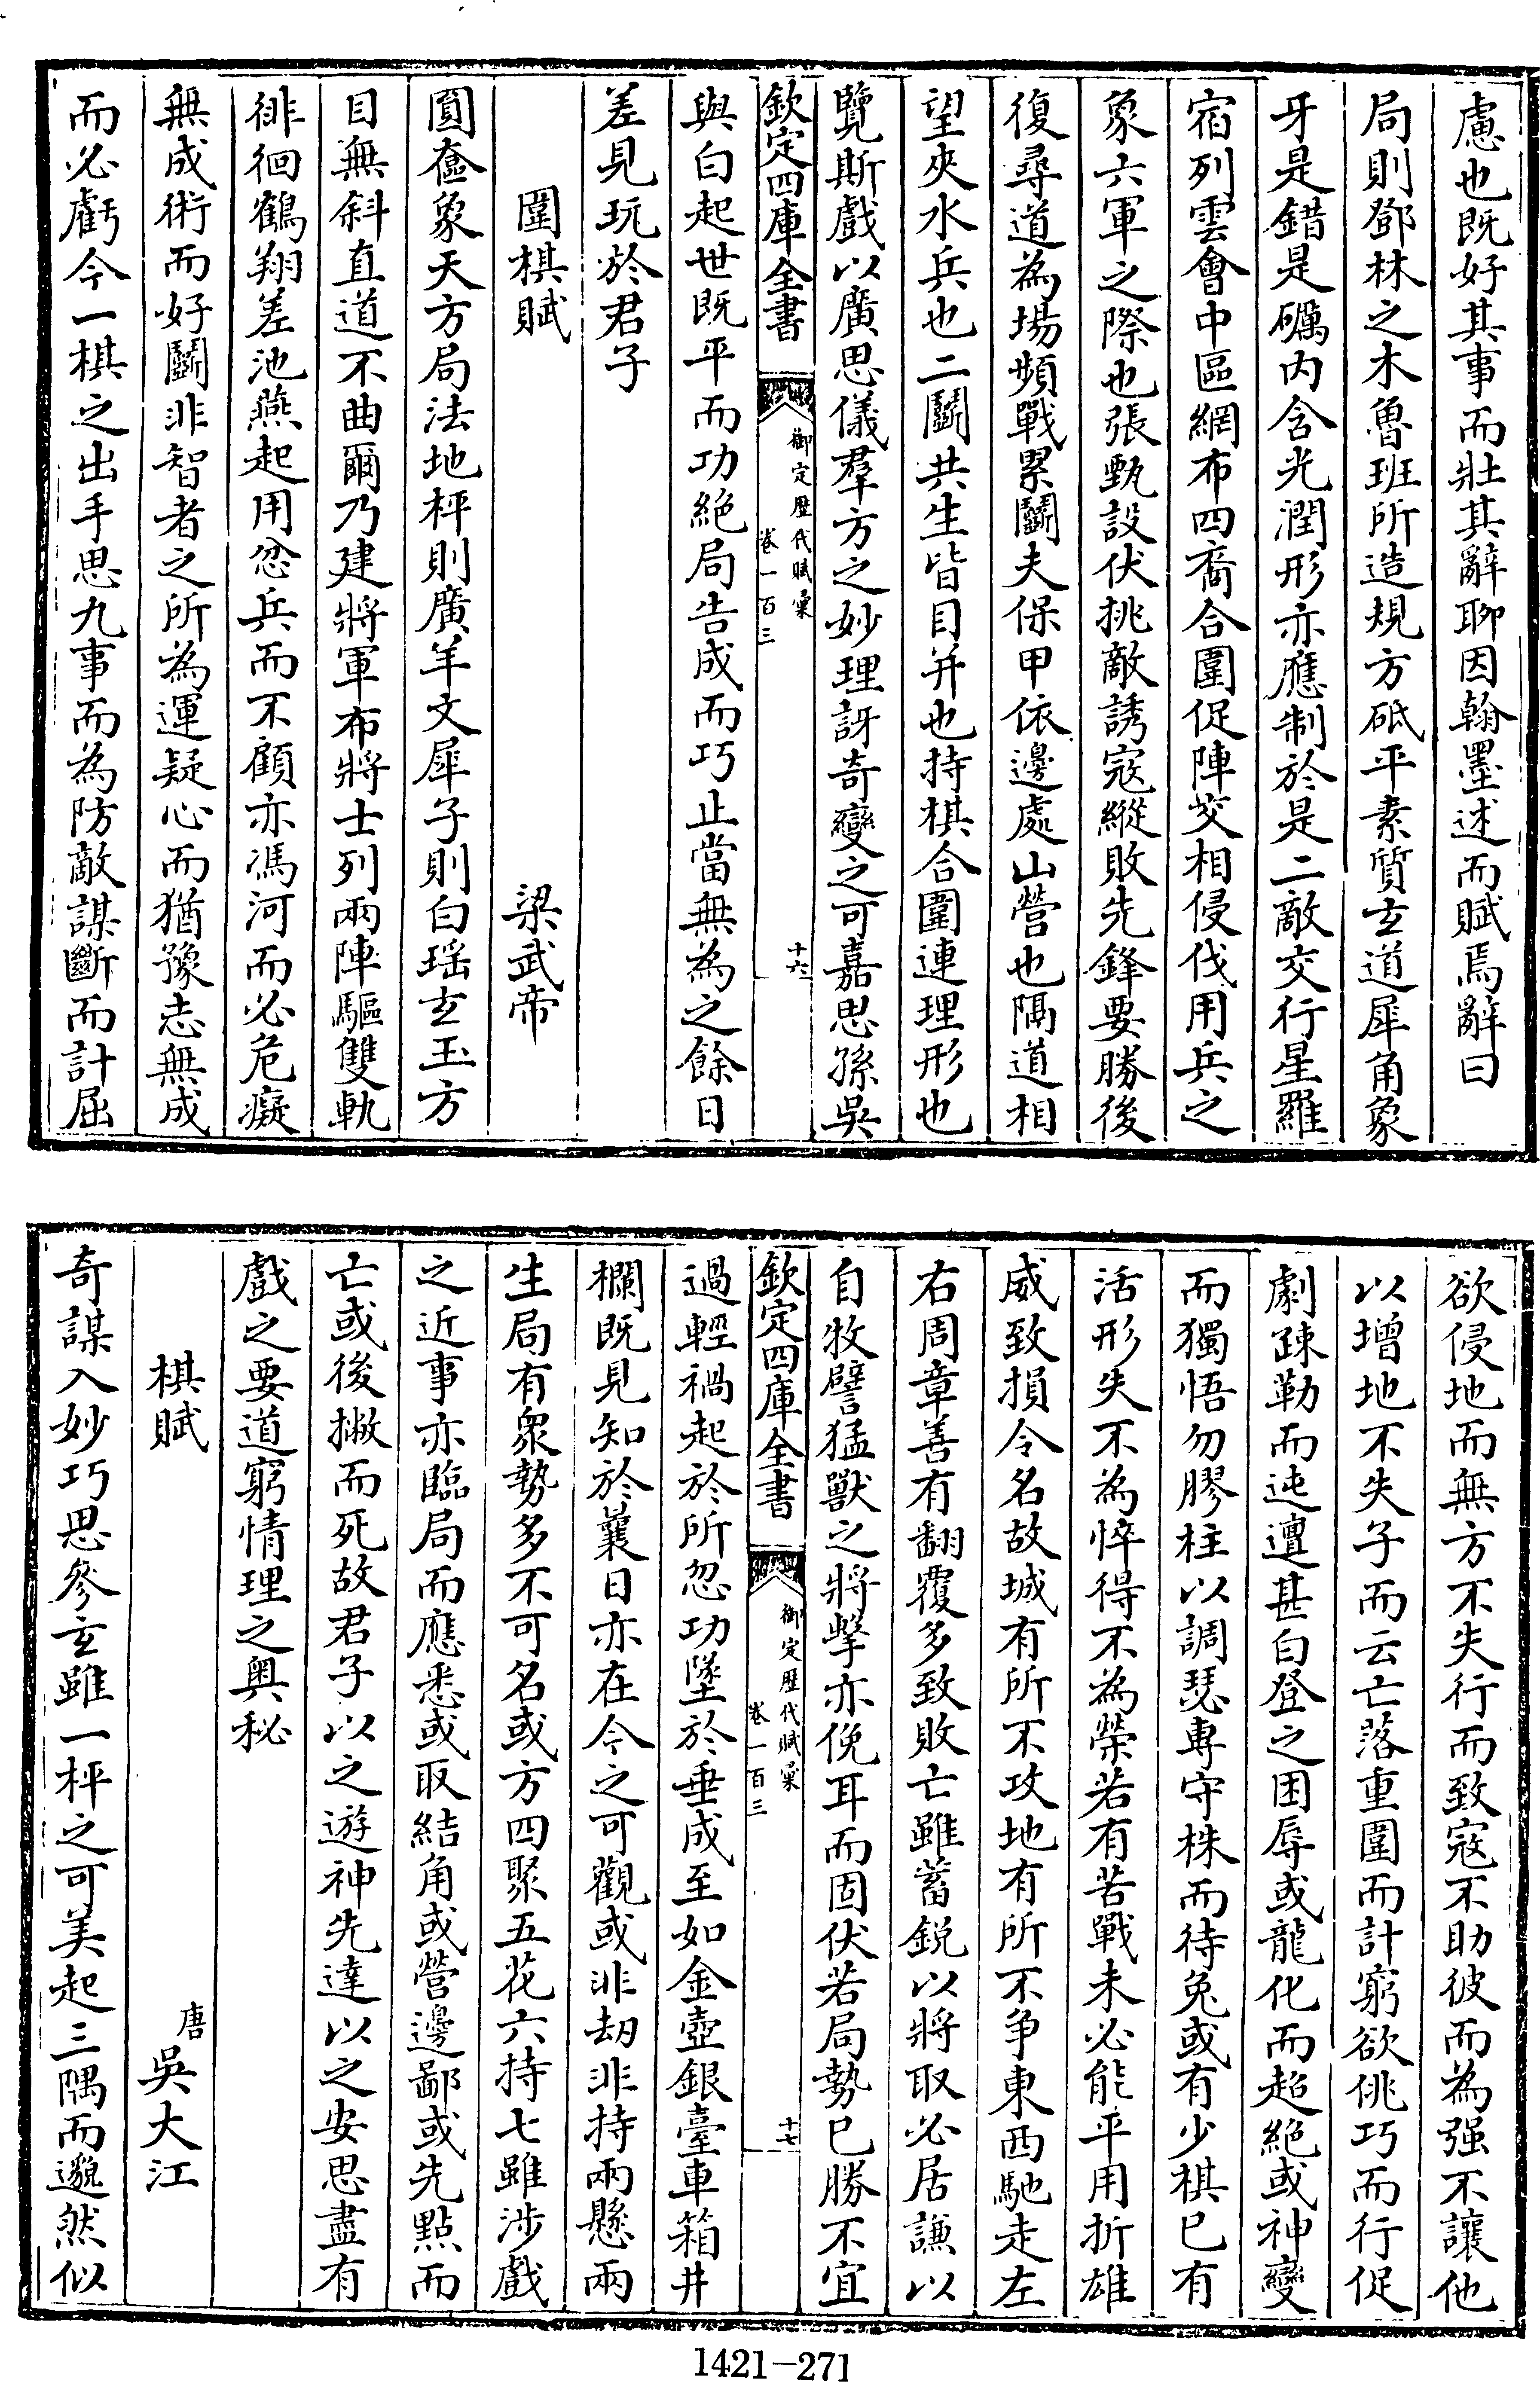 慮也既好其事而壯其辭聊因翰墨述而賦焉辭曰
局則鄧林之木魯班所造規方砥平素質玄道犀角象
牙是錯是礪內含光潤形亦應制於是二敵交行星羅
宿列雲會中區網布四裔合圍促陣交相侵伐用兵之
象六軍之際也張甄設伏挑敵誘寇縱敗先鋒要勝後
復尋道為場頻戰累鬭夫保甲依邊處山營也隔道相
望夾水兵也二鬭共生皆目并也持棋合圍連理形也
覽斯戲以廣思儀羣方之妙理訝奇變之可嘉思孫吳
欽定四庫全書
御定歷代賦彙
卷一百三
十六
與白起世既平而功絕局告成而巧止當無為之餘日
差見玩於君子
圍棋賦
梁武帝
圓奩象天方局法地枰則廣羊文犀子則白瑤玄玉方
目無斜直道不曲爾乃建將軍布將士列兩陣驅雙軌
徘徊鶴翔差池燕起用忿兵而不顧亦馮河而必危癡
無成術而好鬭非智者之所為運疑心而猶豫志無成
而必虧今一棋之出手思九事而為防敵謀斷而計屈
欲侵地而無方不失行而致寇不助彼而為强不讓他
以增地不失子而云亡落重圍而計窮欲佻巧而行促
劇疎勒而迍邅甚白登之困辱或龍化而超絕或神變
而獨悟勿膠柱以調瑟專守株而待兔或有少棋已有
活形失不為悴得不為榮若有苦戰未必能平用折雄
威致損令名故城有所不攻地有所不爭東西馳走左
右周章善有翻覆多致敗亡雖蓄銳以將取必居謙以
自牧譬猛獸之將擊亦俛耳而固伏若局勢已勝不宜
欽定四庫全書
御定歷代賦彙
卷一百三
十七
過輕禍起於所忽功墜於垂成至如金壺銀臺車箱井
欄既見知於曩日亦在今之可觀或非劫非持兩懸兩
生局有衆勢多不可名或方四聚五花六持七雖涉戲
之近事亦臨局而應悉或取結角或營邊鄙或先點而
亡或後撇而死故君子以之遊神先達以之安思盡有
戲之要道窮情理之奧秘
棋賦
唐吳大江
奇謀入妙巧思參玄雖一枰之可美起三隅而邈然似
1421-271